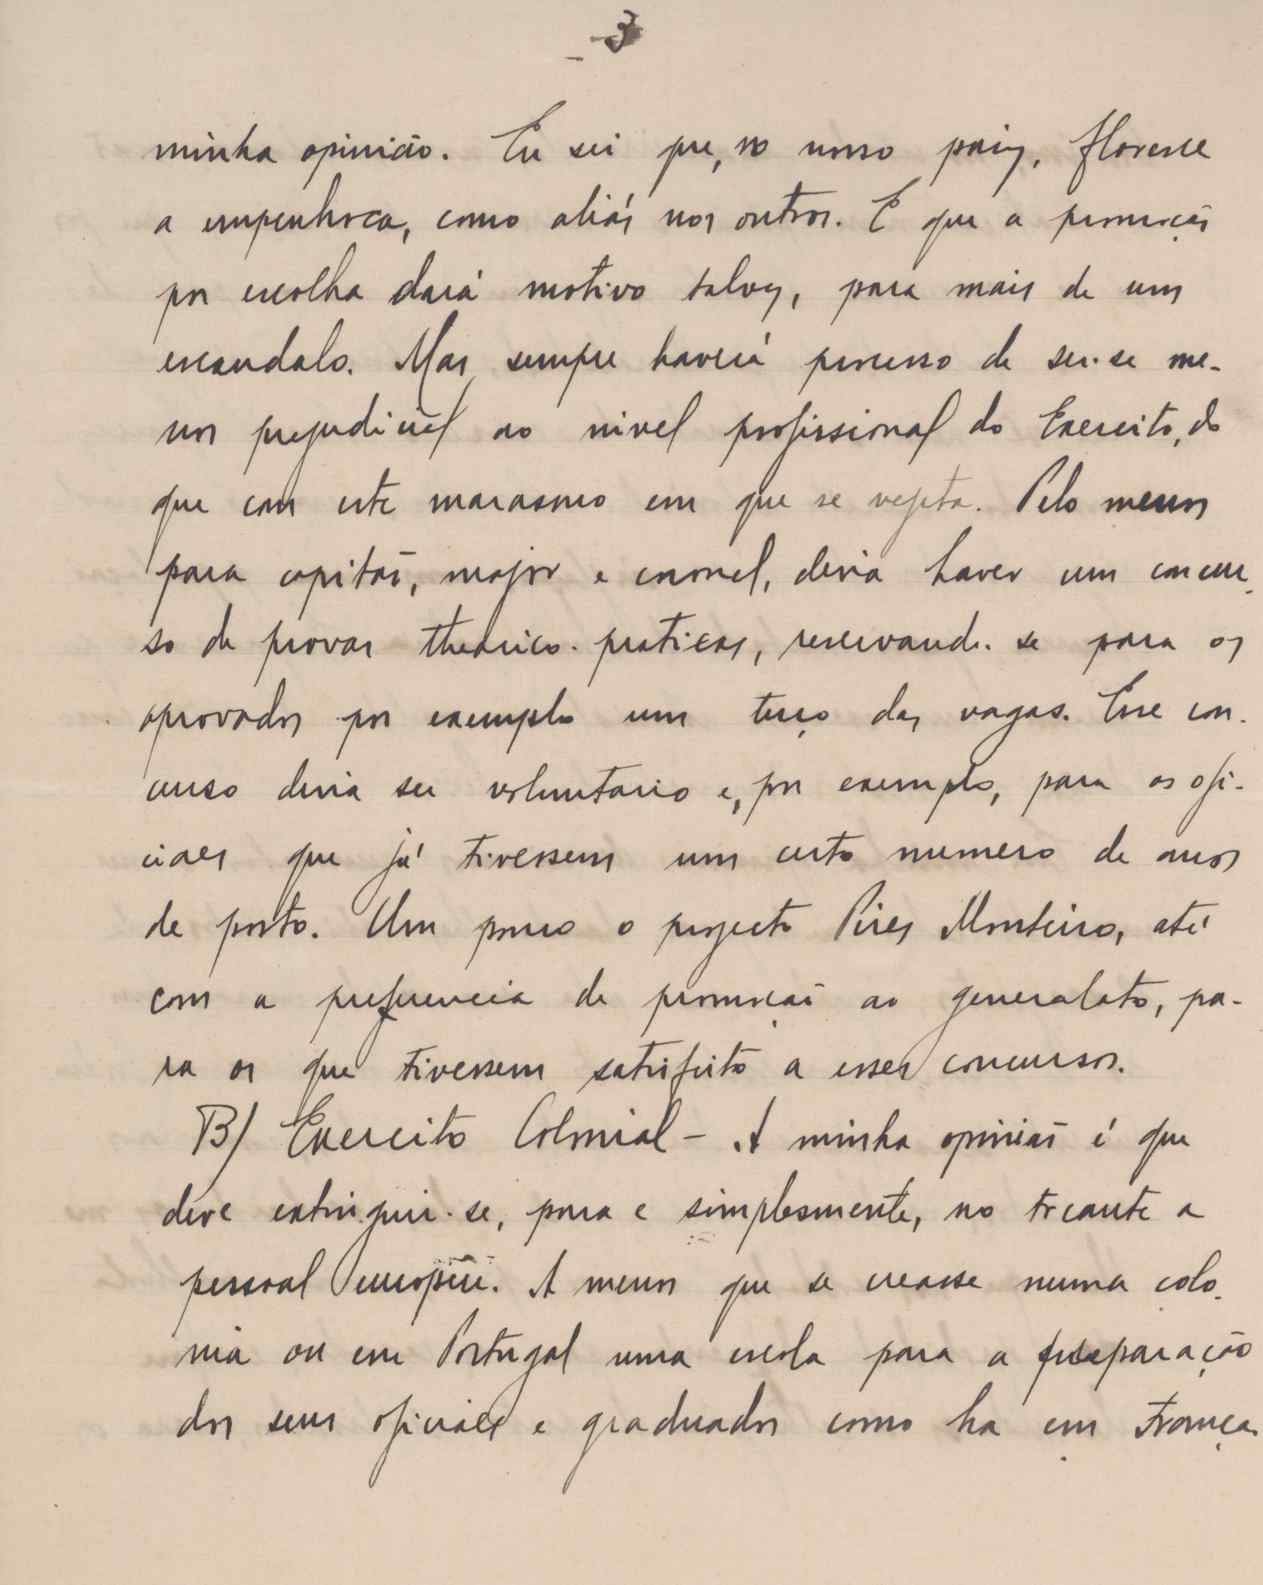 3
minha opinião. Eu sei que, no nosso paiz, floresce
a empenhoca, como aliás nos outros. E que a promoçaõ
por escolha dará motivo talvez, para mais de um
escandalo. Mas sempre haverá processo de ser-se me-
nos prejudicial ao nivel profissional do Exercito, do
que com este marasmo em que se vegeta. Pelo menos
para capitaõ, major e coronel, devia haver um concur-
so de provas theorico-praticas, reservando-se para os
aprovados por exemplo um terço das vagas. Esse con-
curso devia ser voluntario e, por exemplo, para os ofi-
ciaes que já tivessem um certo numero de anos
de posto. Um pouco o projecto Pires Monteiro, até
com a preferencia de promoçaõ ao generalato, pa-
ra os que tivessem satisfeito a esses concursos.
B) Exercito Colonial - A minha opiniaõ é que
deve extinguir-se, pura e simplesmente, no tocante a
pessoal europeu. A menos que se creasse numa colo-
nia ou em Portugal uma escola para a preparação
dos seus oficiaes e graduados como ha em França